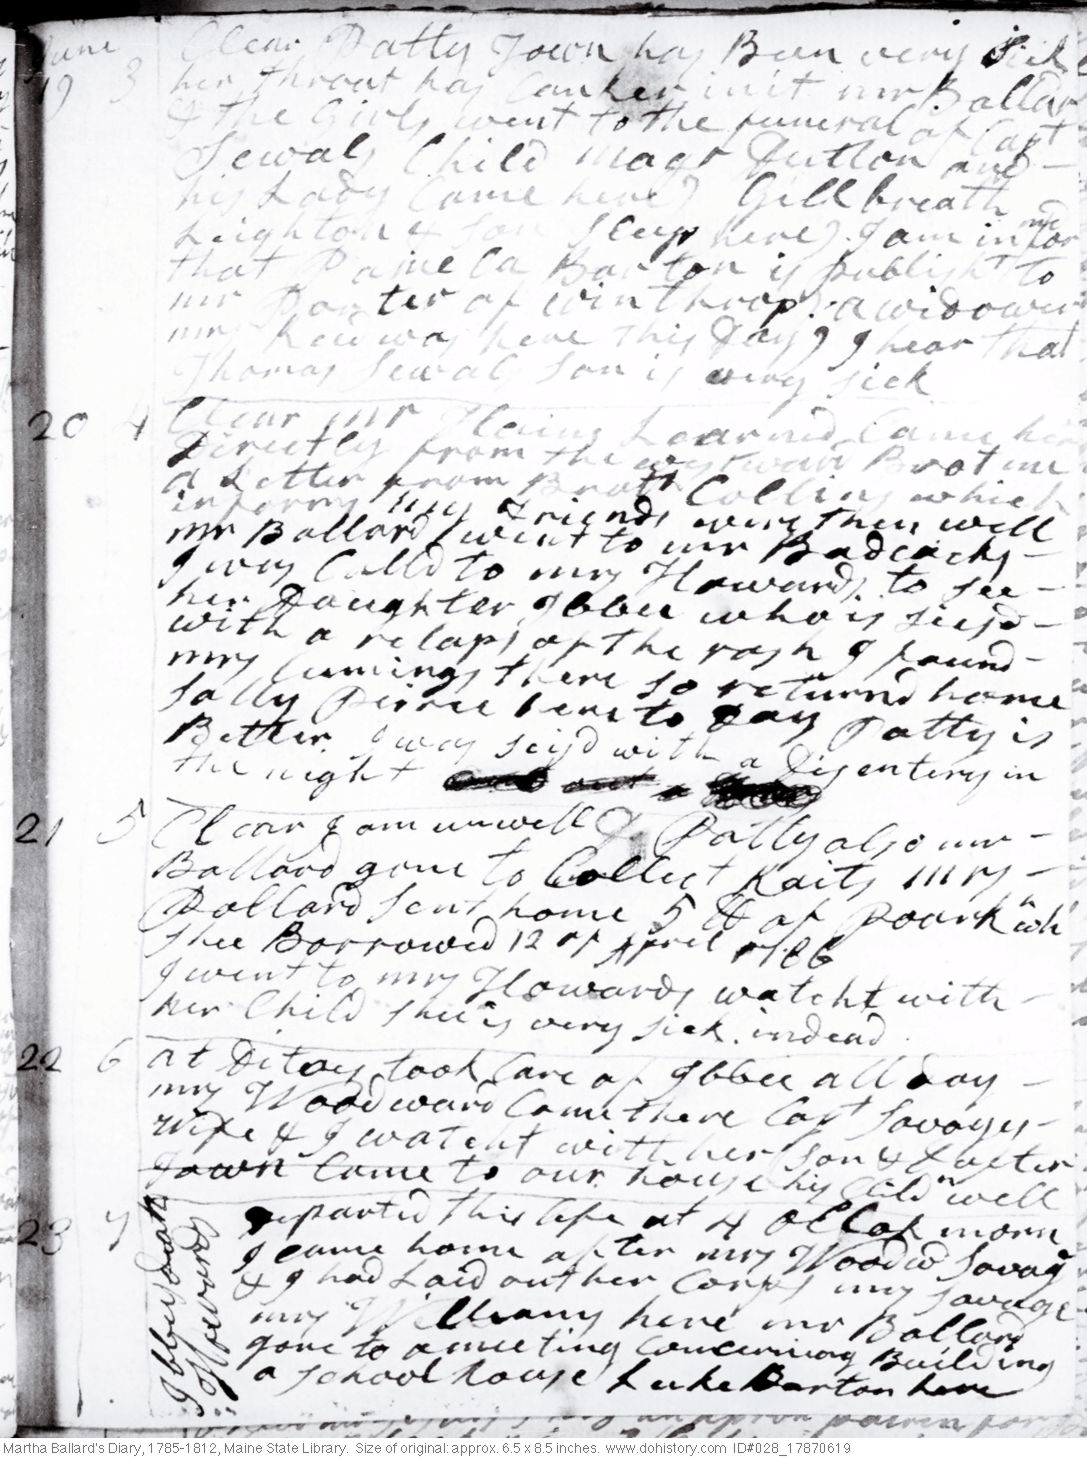 June
19 3 Clear Patty Town has Been very Sick
her throat has Canker in it mr Ballard
& the Girls went to the funeral of Capt
Sewals Child Magr Dutton and
his Lady Came here) Gillbreath
Leighton & son sleep here) I am informd
that Pamela Barton is publisht to
mr Porter of winthrop. a widower
mrs Reed was here this Day) I hear that
Thomas Sewals Son is very sick
20 4 Clear mr Hains Learned Came here
Directly from the westward Brot me
a Letter from Brotr Collins which
informs my Friends were then well
mr Ballard went to mr Badcocks
I was Calld to mrs Howards to see
her Daughter Ibbee who is siesd
with a relaps of the rash I found
mrs Cumings there so returnd home
Sally Peirce here to Day Patty is
Better. I was seisd with a Disentery in
the night
21 5 Clear I am unwell & Patty also mr
Ballard gone to Collect Raits mrs
Pollard sent home 5 lb of poark wh
shee Borrowed 12 of April 1786
I went to mrs Howards watcht with
her Child shee is very sick indead
22 6 at Ditoes took Care of Ibbee all day
mrs Woodward Came there Capt Savages
wife & I watcht with her (son & Daftr
Town Came to our house his Child unwell
23 7 Departed this life at 4 oClok morn
Ibbey Jonath Howards
I came home after mrs Woodwd Savage
& I had Laid out her Corps mrs savage
mrs Williams here mr Ballard
gone to a meeting Concerning Building
a school house Luke Barton here
Martha Ballard's Diary, 1785-1812, Maine State Library. Size of original: approx. 6.5 x 8.5 inches. www.dohistory.com ID#028_17870619